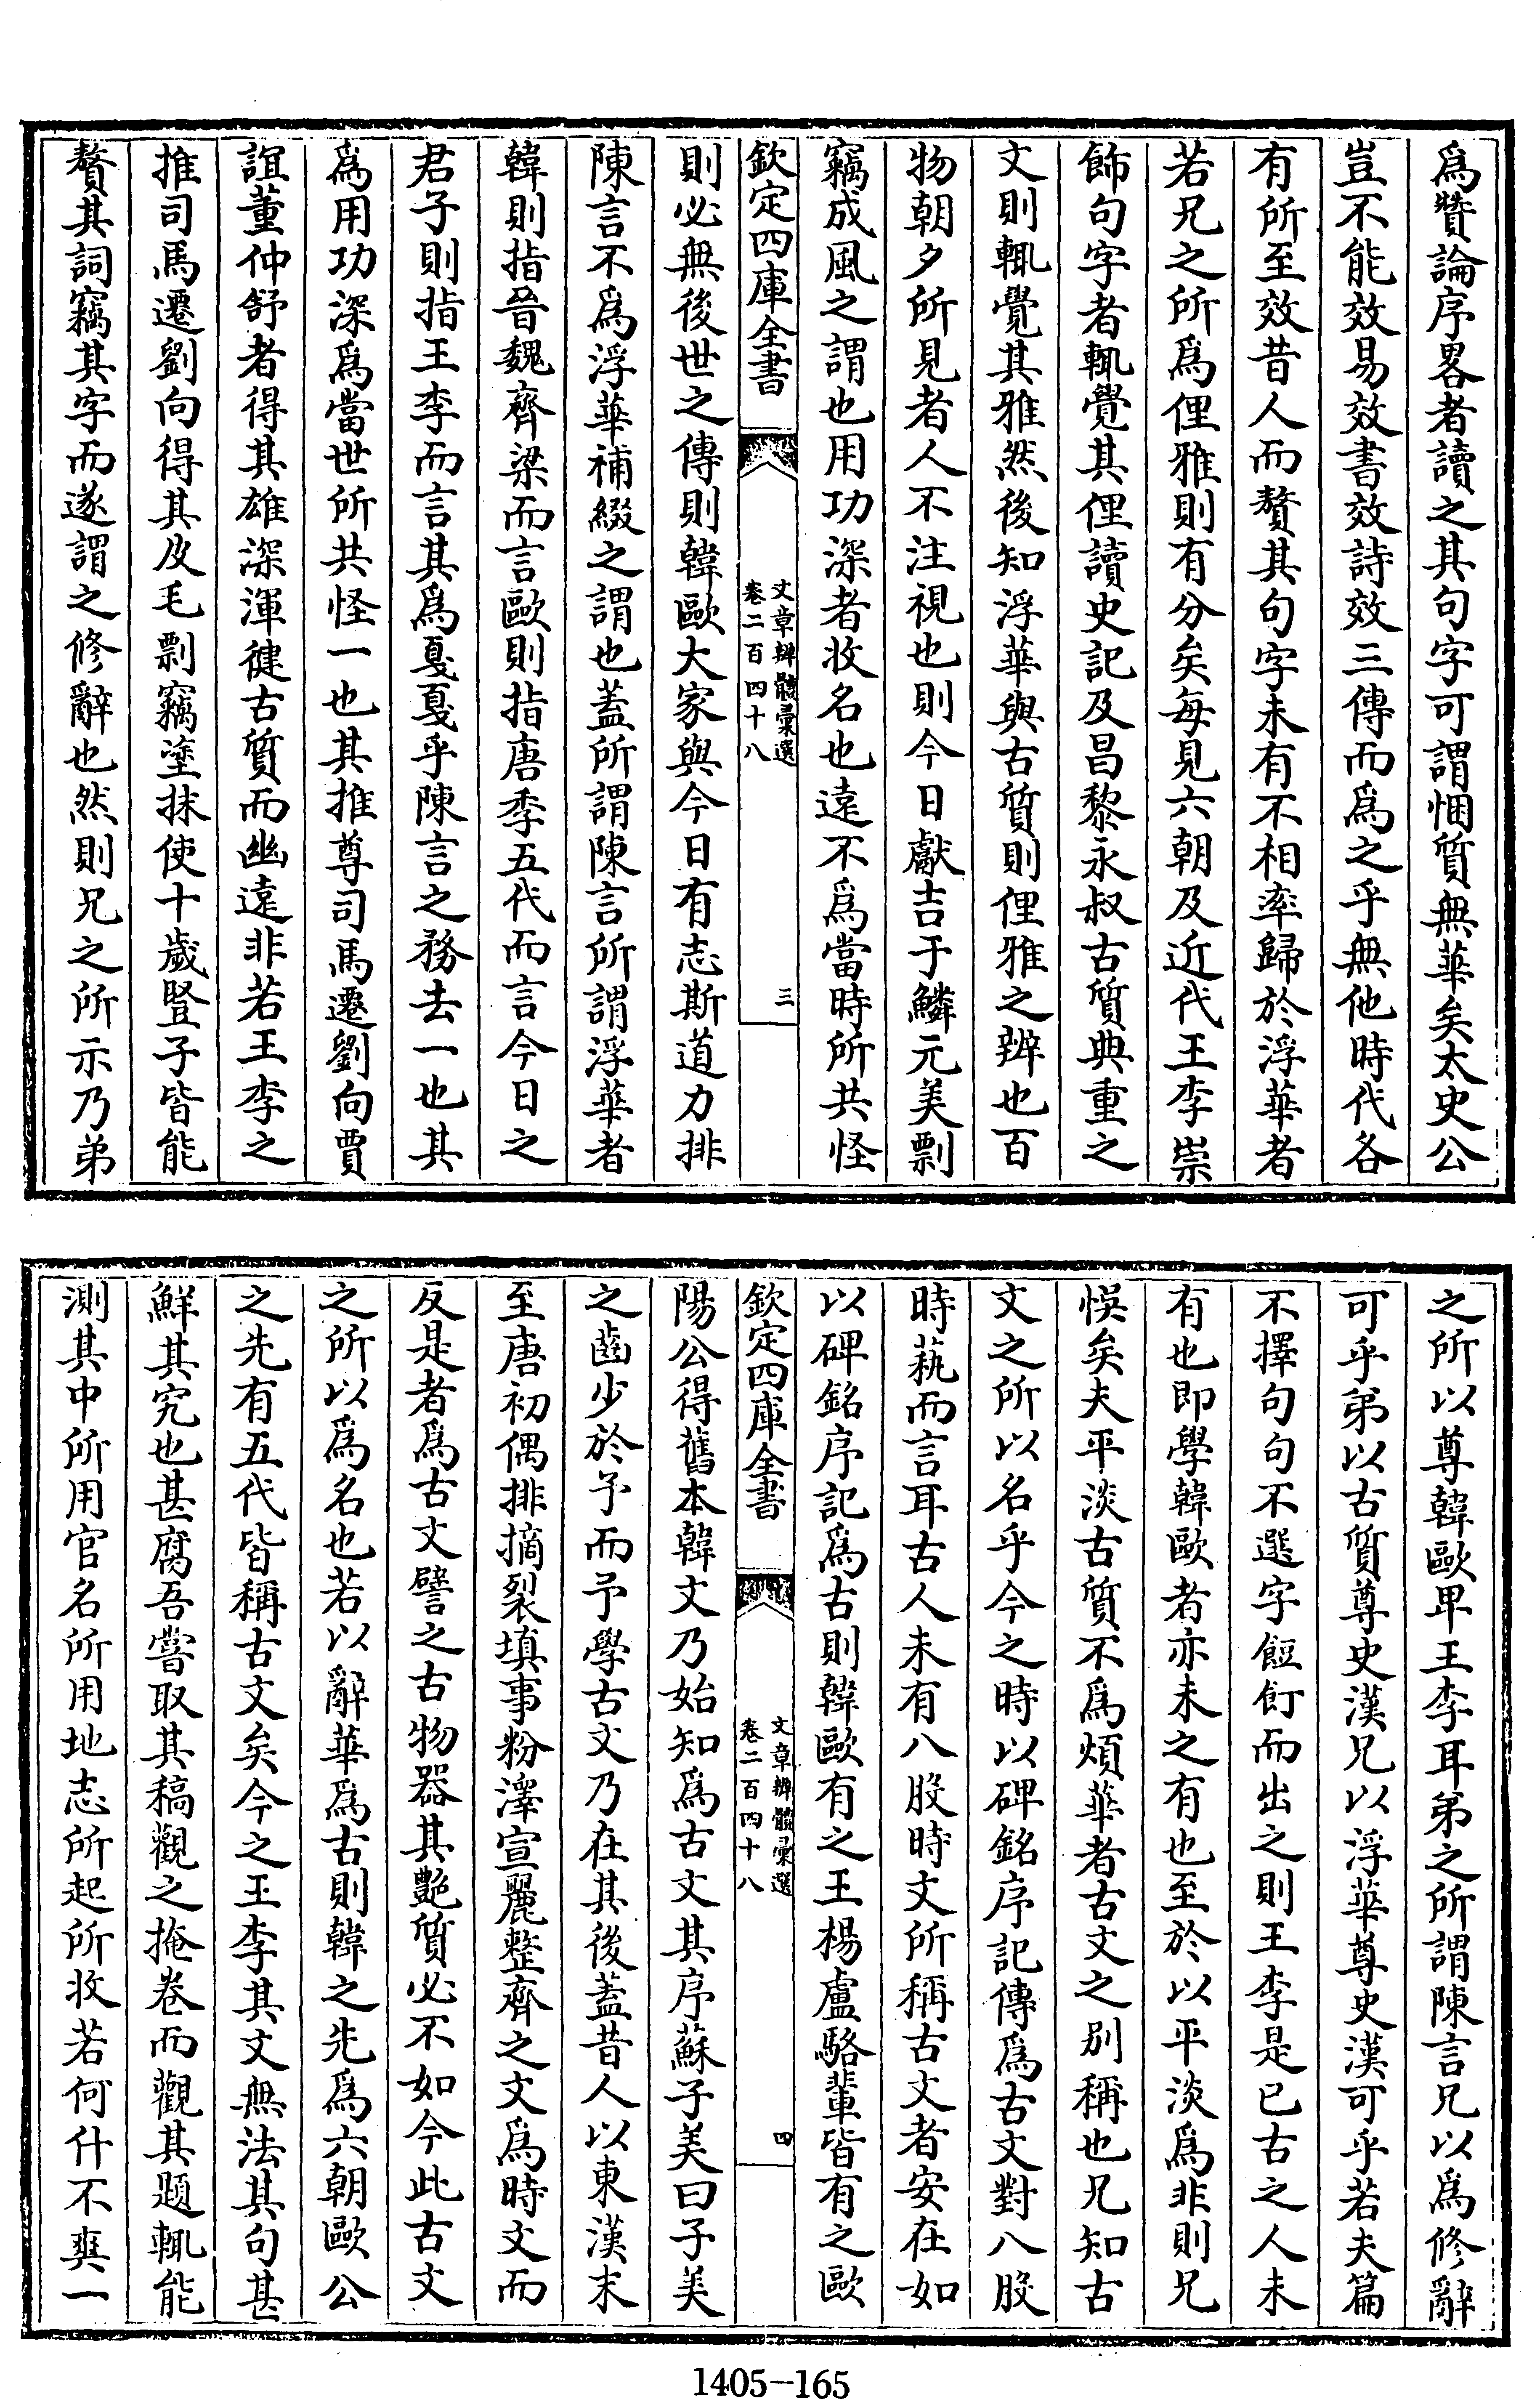 為贊論序畧者讀之其句字可謂悃質無華矣太史公
豈不能效易效書效詩效三傳而為之乎無他時代各
有所至效昔人而贅其句字未有不相率歸於浮華者
若兄之所為俚雅則有分矣每見六朝及近代王李崇
飾句字者輒覺其俚讀史記及昌黎永叔古質典重之
文則輒覺其雅然後知浮華與古質則俚雅之辨也百
物朝夕所見者人不注視也則今日獻吉于鱗元美剽
竊成風之謂也用功深者收名也遠不為當時所共怪
欽定四庫全書
文章辨體彙選
卷二百四十八
三
則必無後世之傳則韓歐大家與今日有志斯道力排
陳言不為浮華補綴之謂也蓋所謂陳言所謂浮華者
韓則指晉魏齊梁而言歐則指唐季五代而言今日之
君子則指王李而言其為戛戛乎陳言之務去一也其
為用功深為當世所共怪一也其推尊司馬遷劉向賈
誼董仲舒者得其雄深渾健古質而幽遠非若王李之
推司馬遷劉向得其皮毛剽竊塗抹使十歲豎子皆能
贅其詞竊其字而遂謂之修辭也然則兄之所示乃弟
之所以尊韓歐卑王李耳弟之所謂陳言兄以為修辭
可乎弟以古質尊史漢兄以浮華尊史漢可乎若夫篇
不擇句句不選字餖飣而出之則王李是已古之人未
有也即學韓歐者亦未之有也至於以平淡為非則兄
悞矣夫平淡古質不為煩華者古文之别稱也兄知古
文之所以名乎今之時以碑銘序記傳為古文對八股
時蓺而言耳古人未有八股時文所稱古文者安在如
以碑銘序記為古則韓歐有之王楊盧駱輩皆有之歐
欽定四庫全書
文章辨體彙選
卷二百四十八
四
陽公得舊本韓文乃始知為古文其序蘇子美曰子美
之齒少於予而予學古文乃在其後蓋昔人以東漢末
至唐初偶排摘裂填事粉澤宣麗整齊之文為時文而
反是者為古文譬之古物器其艷質必不如今此古文
之所以為名也若以辭華為古則韓之先為六朝歐公
之先有五代皆稱古文矣今之王李其文無法其句甚
鮮其究也甚腐吾嘗取其稿觀之掩卷而觀其題輒能
測其中所用官名所用地志所起所收若何什不爽一
1405-165